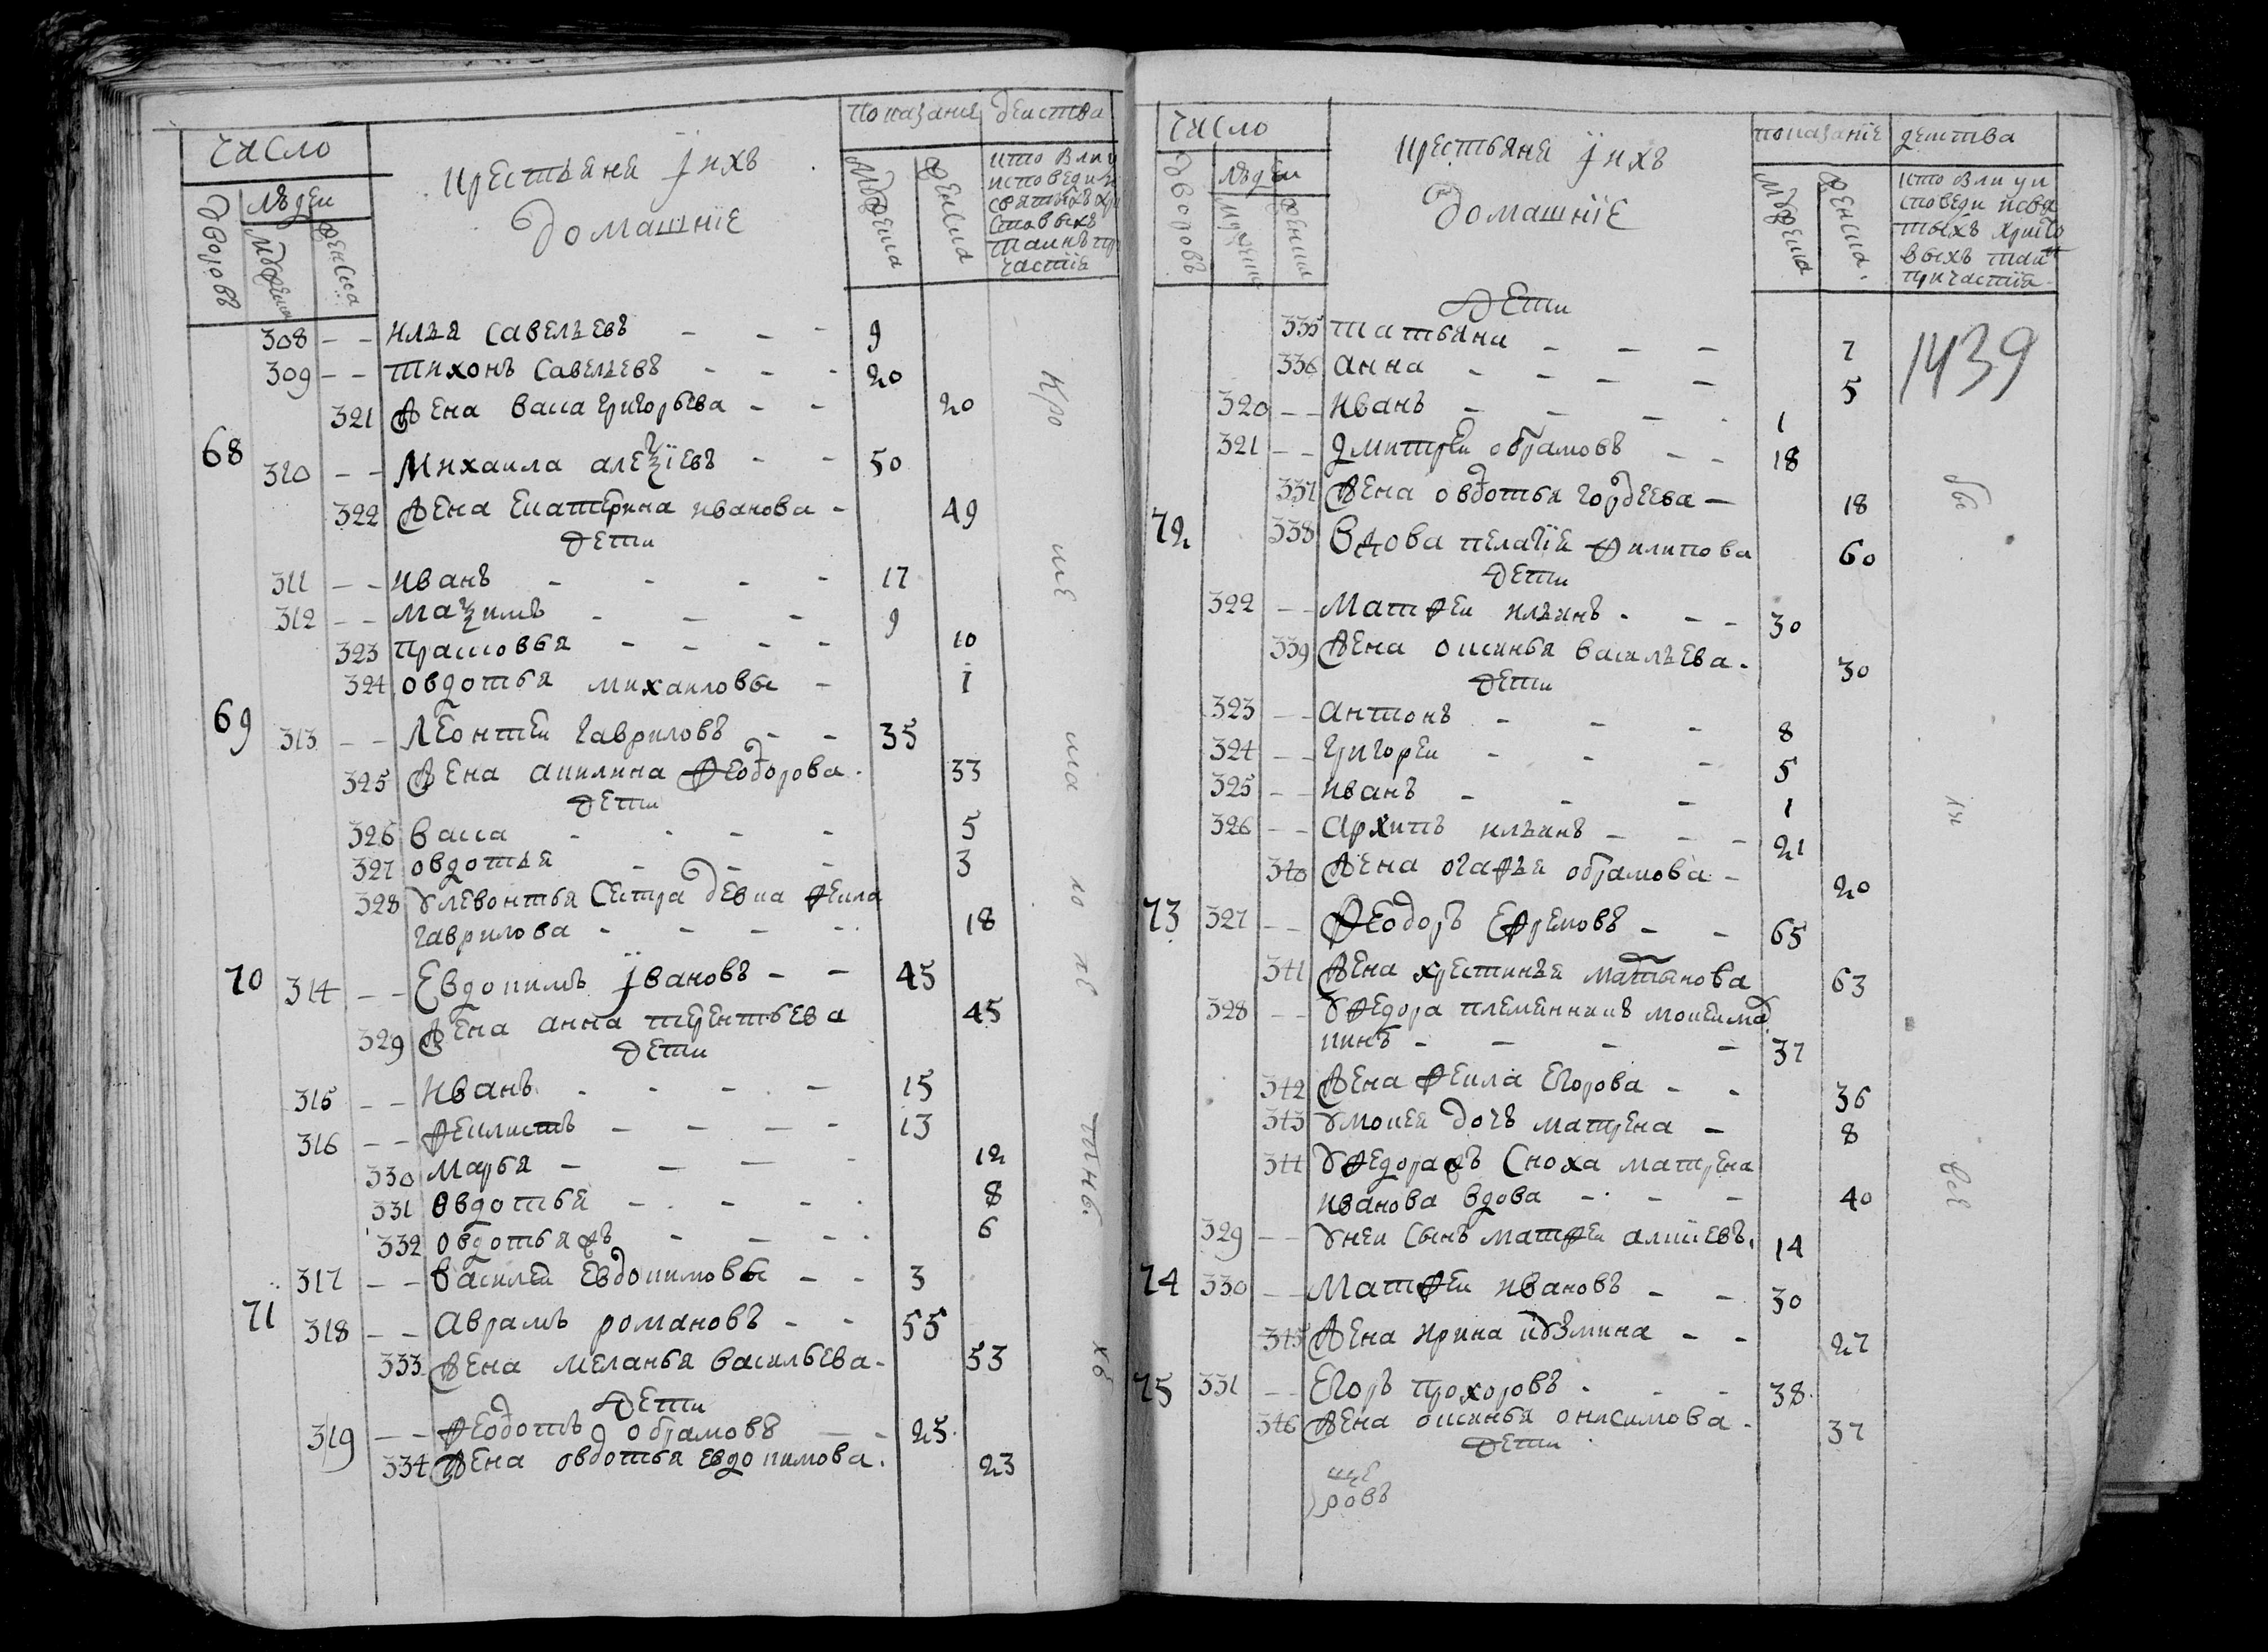 число
крестьяне ӏихъ
домашніе
показание действа
дворовъ
людеи
мужеска
женска
мужеска
женска
кто были у
исповеди и
святыхъ хри
стовыхъ
таинъ при
частіе
308 – – илья савельевъ – – – 9
309 – – тихонъ савельевъ – – – 20
321 жена васа григорьева – – 20
68 310 – – михаила алеѯіевъ – – 50
322 жена екатерина иванова – 49
дети
311 – – иванъ – – – – 17
312 – – маѯимъ – – – 9
323 прасковья – – – – 10
324 овдотья михаиловы – 1
69 313 – – леонтеи гавриловъ – – 35
325 жена акилина ѳеодорова. 33
дети
326 васса – – – – 5
327 овдотья – – – 3
328 улевонтья сестра девка фекла
гаврилова – – – – 18
70 314 – – евдокимъ ӏвановъ – – 45
329 жена анна терентьева 45
дети
315 – – иванъ – – – – 15
316 – – феклистъ – – – – 13
330 марья – – – – 12
331 овдотья – – – – 8
332 овдотьяжъ – – – – 6
317 – – василеи евдокимовы – – 3
71 318 – – аврамъ романовъ – – 55
333 жена меланья васильева – 53
дети
319 – – ѳеодотъ обрамовъ – – 25
334 жена овдотья евдокимова. 23
число
крестьяне ӏихъ
домашніе
показаніе действа
дворовъ
людеи
мужеска
женска
мужеска
женска
кто были у и
споведи исвя
тыхъ христо
выхъ таи
причастія
1439
дети
335 татьяна – – – 7
336 анна – – – – 5
320 – – иванъ – – – 1
321 – – дмитреи обрамовъ – – 18
337 жена овдотья гордеева – 18
72 338 вдова пелагіе филипова 60
дети
322 – – матфеи ильинъ – – – 30
339 жена оксинья васильева. 30
дети
323 – – антонъ – – – 8
324 – – григореи – – – 5
325 – – иванъ – – – 1
326 – – архипъ ильинъ – – – 21
340 жена огафья обрамова – 20
73 327 – – ѳеодоръ ефремовъ – – 65
341 жена хрестинья мартынова 63
328 – – уфедора племянникъ мокеи
кинъ – – – – 37
342 жена фекла егорова – – 36
343 умокея дочь матрена – 8
344 уфедоражъ сноха матрена
иванова вдова – – – 40
329 – – унеи сынъ матфеи 14
74 330 – – матфеи ивановъ – – 30
345 жена ирина кузмина – – 27
75 331 – – егоръ прохоровъ – – – 38
346 жена оксинья онисимова. 37
дети